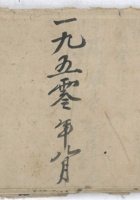 一九五零年八月